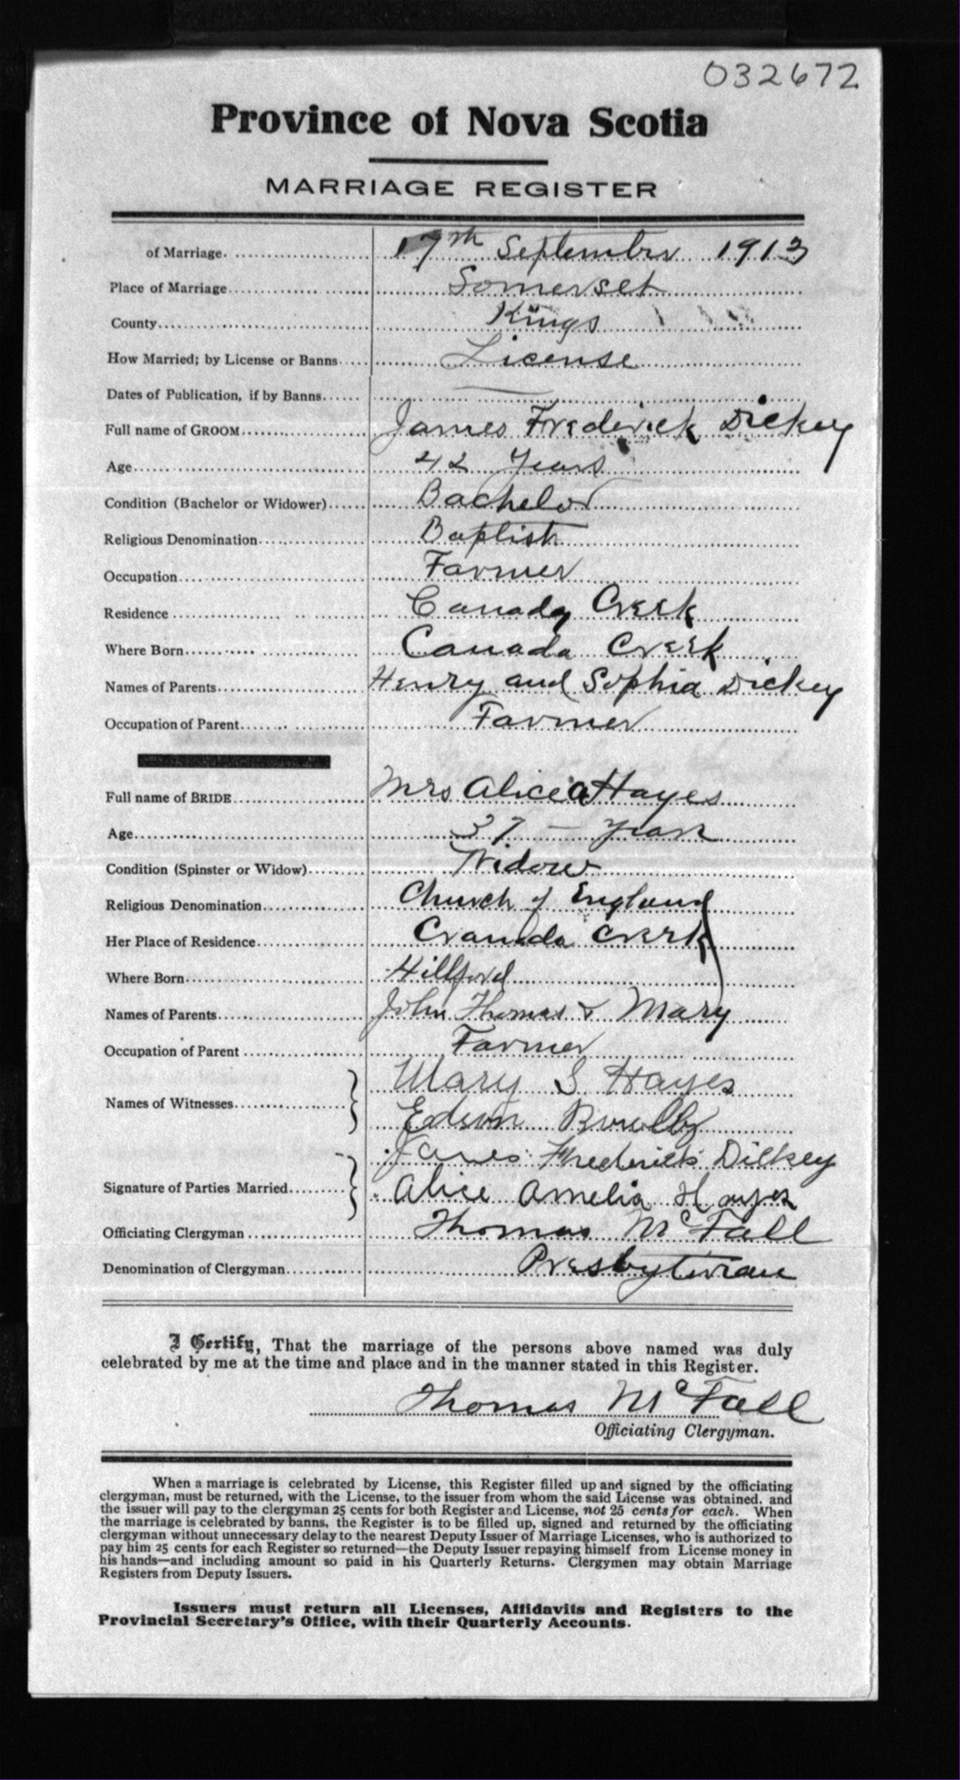 032672
Province of Nova Scotia
MARRIAGE REGISTER
of Marriage. 17th September 1913
Place of Marriage Somerset
County Kings
How Married; by License or Banns License
Dates of Publication, if by Banns
Full name of GROOM James Frederick Dickey
Age 42 Years
Condition (Bachelor or Widower) Bachelor
Religious Denomination Baptist
Occupation Farmer
Residence Canady Creek
Where Born Canada Creek
Names of Parents Henry and Sophia Dickey
Occupation of Parent Farmer
Full name of BRIDE Mrs Alice A Hayes
Age 37 – Years
Condition (Spinster or Widow) Widow
Religious Denomination Church of England
Her Place of Residence Cranada Creek
Where Born
Names of Parents John Thomas & Mary
Occupation of Parent Farmer
Names of Witnesses Mary S Hayes
Edson
James Frederick Dickey
Signature of Parties Married Alice Amelia Hayes
Officiating Clergyman Thomas McFall
Denomination of Clergyman Presbyterian
I Certify, That the marriage of the persons above named was duly
celebrated by me at the time and place and in the manner stated in this Register.
Thomas McFall
Officiating Clergyman.
When a marriage is celebrated by License, this Register filled up and signed by the officiating
clergyman, must be returned, with the License, to the issuer from whom the said License was obtained, and
the issuer will pay to the clergyman 25 cents for both Register and License, not 25 cents for each. When
the marriage is celebrated by banns, the Register is to be filled up, signed and returned by the officiating
clergyman without unnecessary delay to the nearest Deputy Issuer of Marriage Licenses, who is authorized to
pay him 25 cents for each Register so returned—the Deputy Issuer repaying himself from License money in
his hands—and including amount so paid in his Quarterly Returns. Clergymen may obtain Marriage
Registers from Deputy Issuers.
Issuers must return all Licenses, Affidavits and Registers to the
Provincial Secretary's Office, with their Quarterly Accounts.